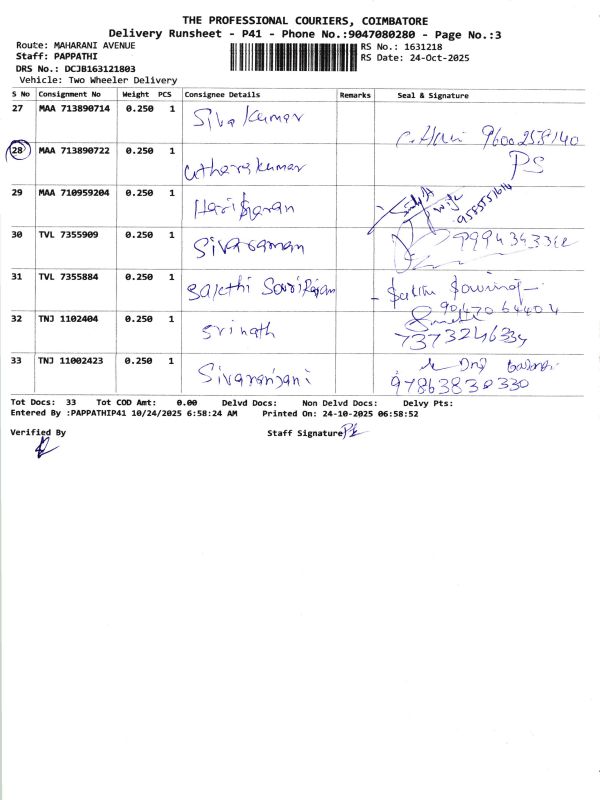 THE PROFESSIONAL COURIERS, COIMBATORE
Delivery Runsheet - P41 - Phone No.:9047080280 - Page No.:3
Route: MAHARANI AVENUE
Staff: PAPPATHI
DRS No.: DCJB163121803
Vehicle: Two Wheeler Delivery
RS No.: 1631218
RS Date: 24-Oct-2025
S No Consignment No Weight PCS Consignee Details Remarks Seal & Signature
27 MAA 713890714 0.250 1 Siva Kumar 9600259140
28 MAA 713890722 0.250 1 PS
29 MAA 710959204 0.250 1 Hariharan wife
30 TVL 7355909 0.250 1 Sivaraman
31 TVL 7355884 0.250 1 Sakthi
32 TNJ 1102404 0.250 1 Srinath
33 TNJ 11002423 0.250 1 Sivaranjani 97863830330
Tot Docs: 33 Tot COD Amt: 0.00 Delvd Docs: Non Delvd Docs: Delvy Pts:
Entered By :PAPPATHIP41 10/24/2025 6:58:24 AM Printed On: 24-10-2025 06:58:52
Verified By Staff Signature